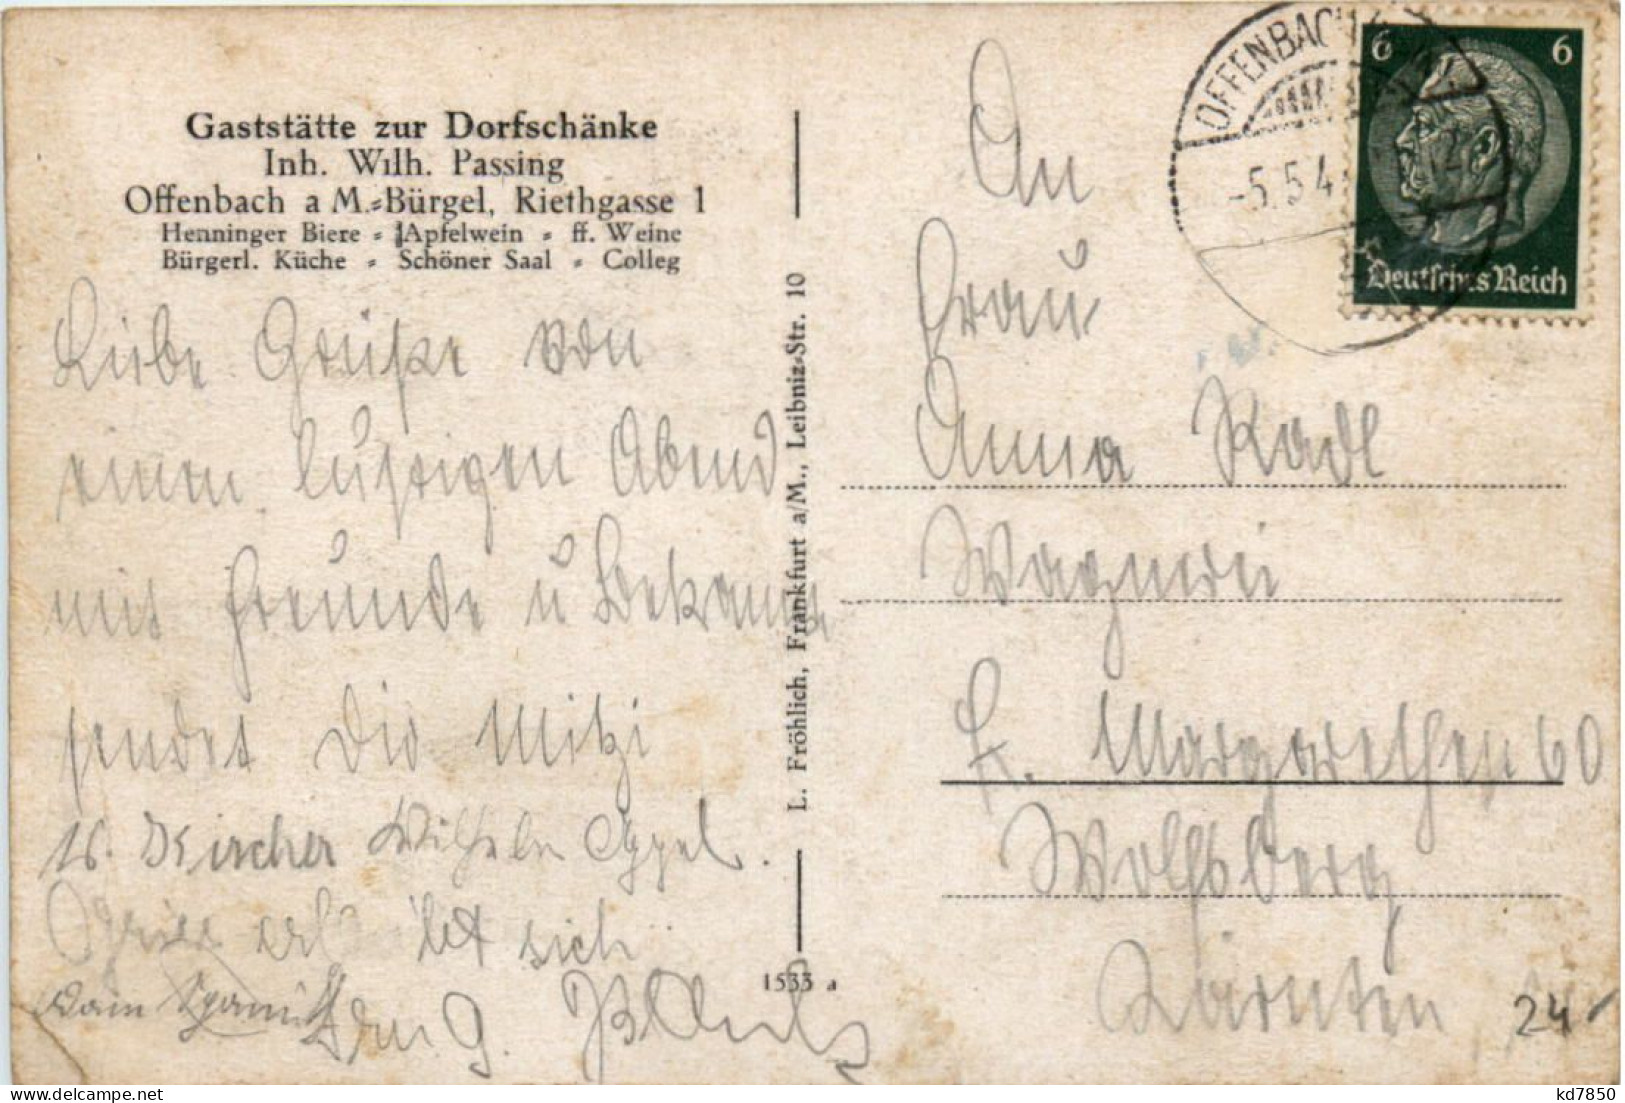 Gaststätte zur Dorfschänke
Inh. Wilh. Passing
Offenbach a M.-Bürgel, Riethgasse 1
Henninger Biere - Apfelwein - ff. Weine
Bürgerl. Küche - Schöner Saal - Colleg
Liebe Grüße von
einem lustigen Abend
mit Freunde u Bekannte
sendet Dir Mitzi
Kircher Wilhelm Appel.
sich
L. Fröhlich, Frankfurt a/M., Leibniz-Str. 10
1533 a
OFFENBACH
-5.5.4
6 6
Deutsches Reich
An
Frau
Anna Radl
Wagnerin
St. Margarethen 60
Wolfsberg
Kärnten
24
kd7850